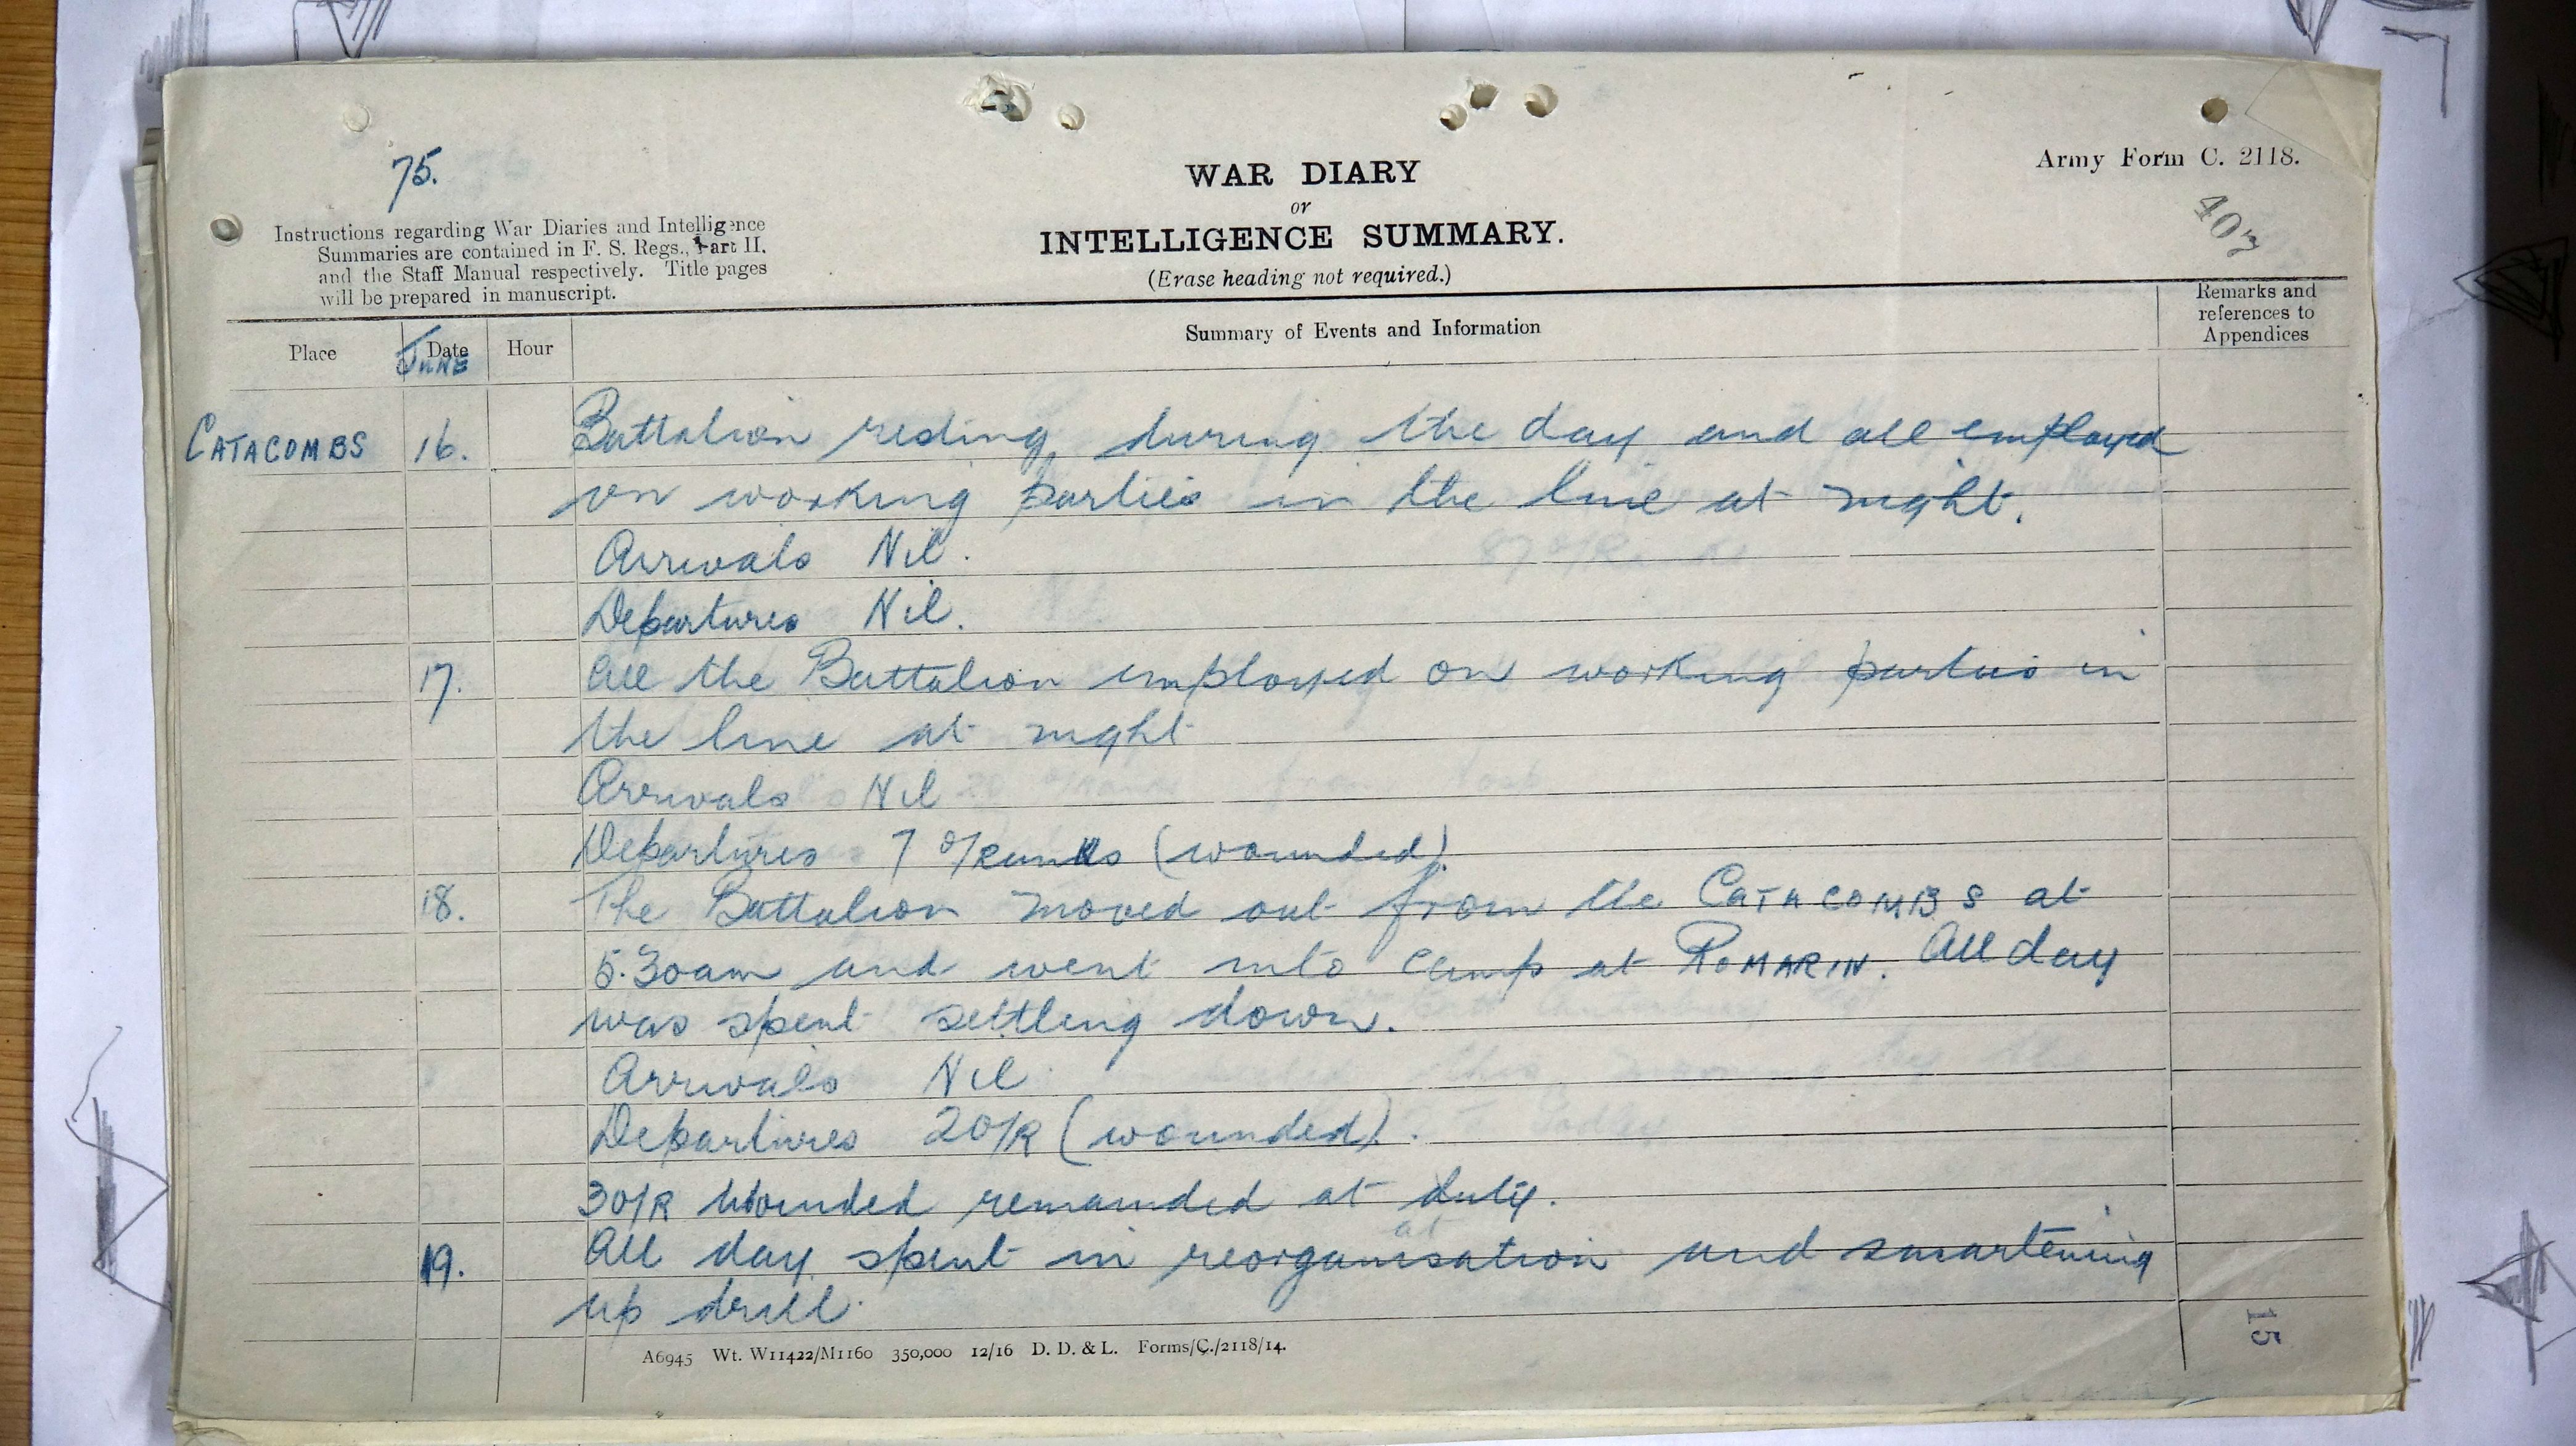 75.
WAR DIARY
or
INTELLIGENCE SUMMARY.
(Erase heading not required.)
Army Form C. 2118.
407
Instructions regarding War Diaries and Intelligence
Summaries are contained in F. S. Regs., Part II.
and the Staff Manual respectively. Title pages
will be prepared in manuscript.
Place
Date
JUNE
Hour
Summary of Events and Information
Remarks and
references to
Appendices
CATACOMBS 16. Battalion resting during the day and all employed
on working parties in the line at night.
Arrivals Nil.
Departures Nil.
17. All the Battalion employed on working parties in
the line at night
Arrivals Nil
Departures 7 O/Ranks (wounded)
18. The Battalion moved out from the CATACOMBS at
5.30am and went into camp at ROMARIN. All day
was spent settling down.
Arrivals Nil
Departures 2 O/R (wounded).
3 O/R Wounded remainded at duty.
19. All day spent in reorganisation and smartening
up drill.
A6945 Wt. W11422/M1160 350,000 12/16 D. D. & L. Forms/C./2118/14.
15